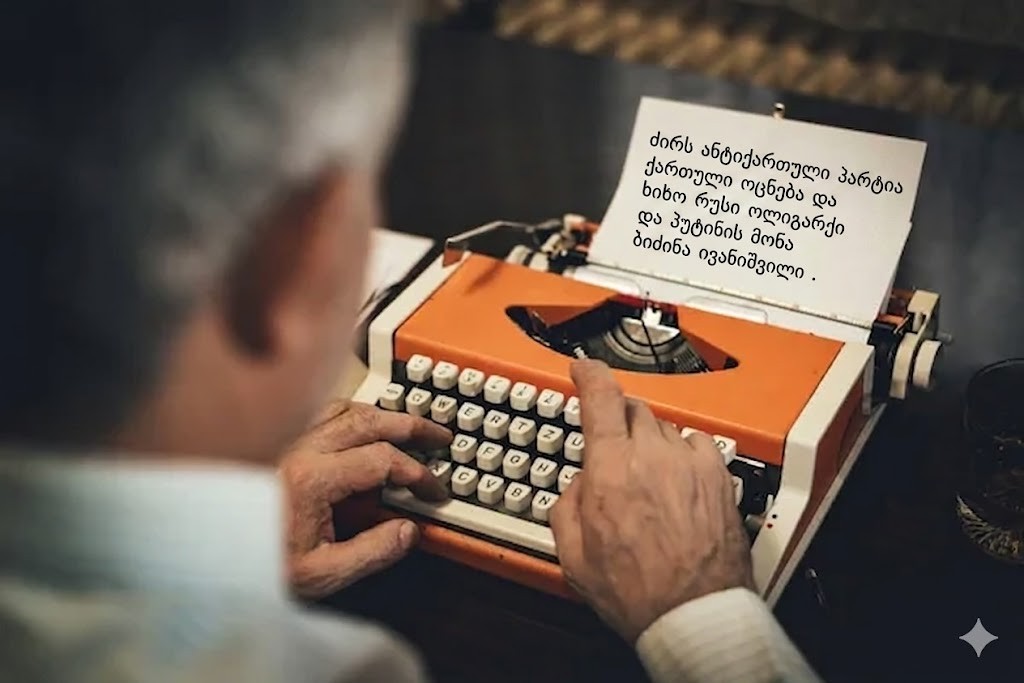 ძირს ანტიქართული პარტია
ქართული ოცნება და
ხიხო რუსი ოლიგარქი
და პუტინის მონა
ბიძინა ივანიშვილი .
W E R T Z U
D F G H
C V B N